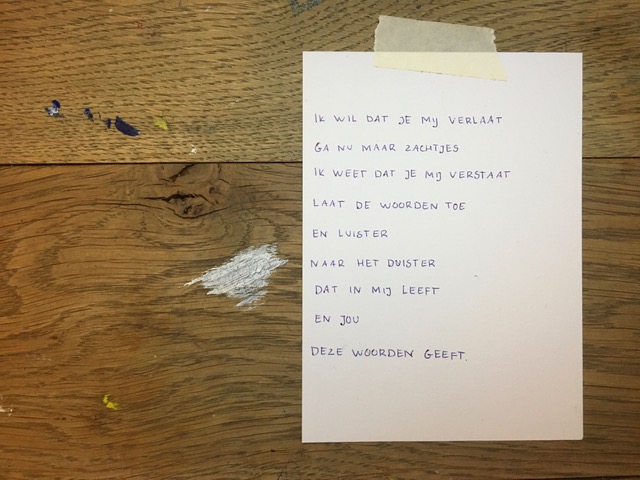 IK WIL DAT JE MIJ VERLAAT
GA NU MAAR ZACHTJES
IK WEET DAT JE MIJ VERSTAAT
LAAT DE WOORDEN TOE
EN LUISTER
NAAR HET DUISTER
DAT IN MIJ LEEFT
EN JOU
DEZE WOORDEN GEEFT.